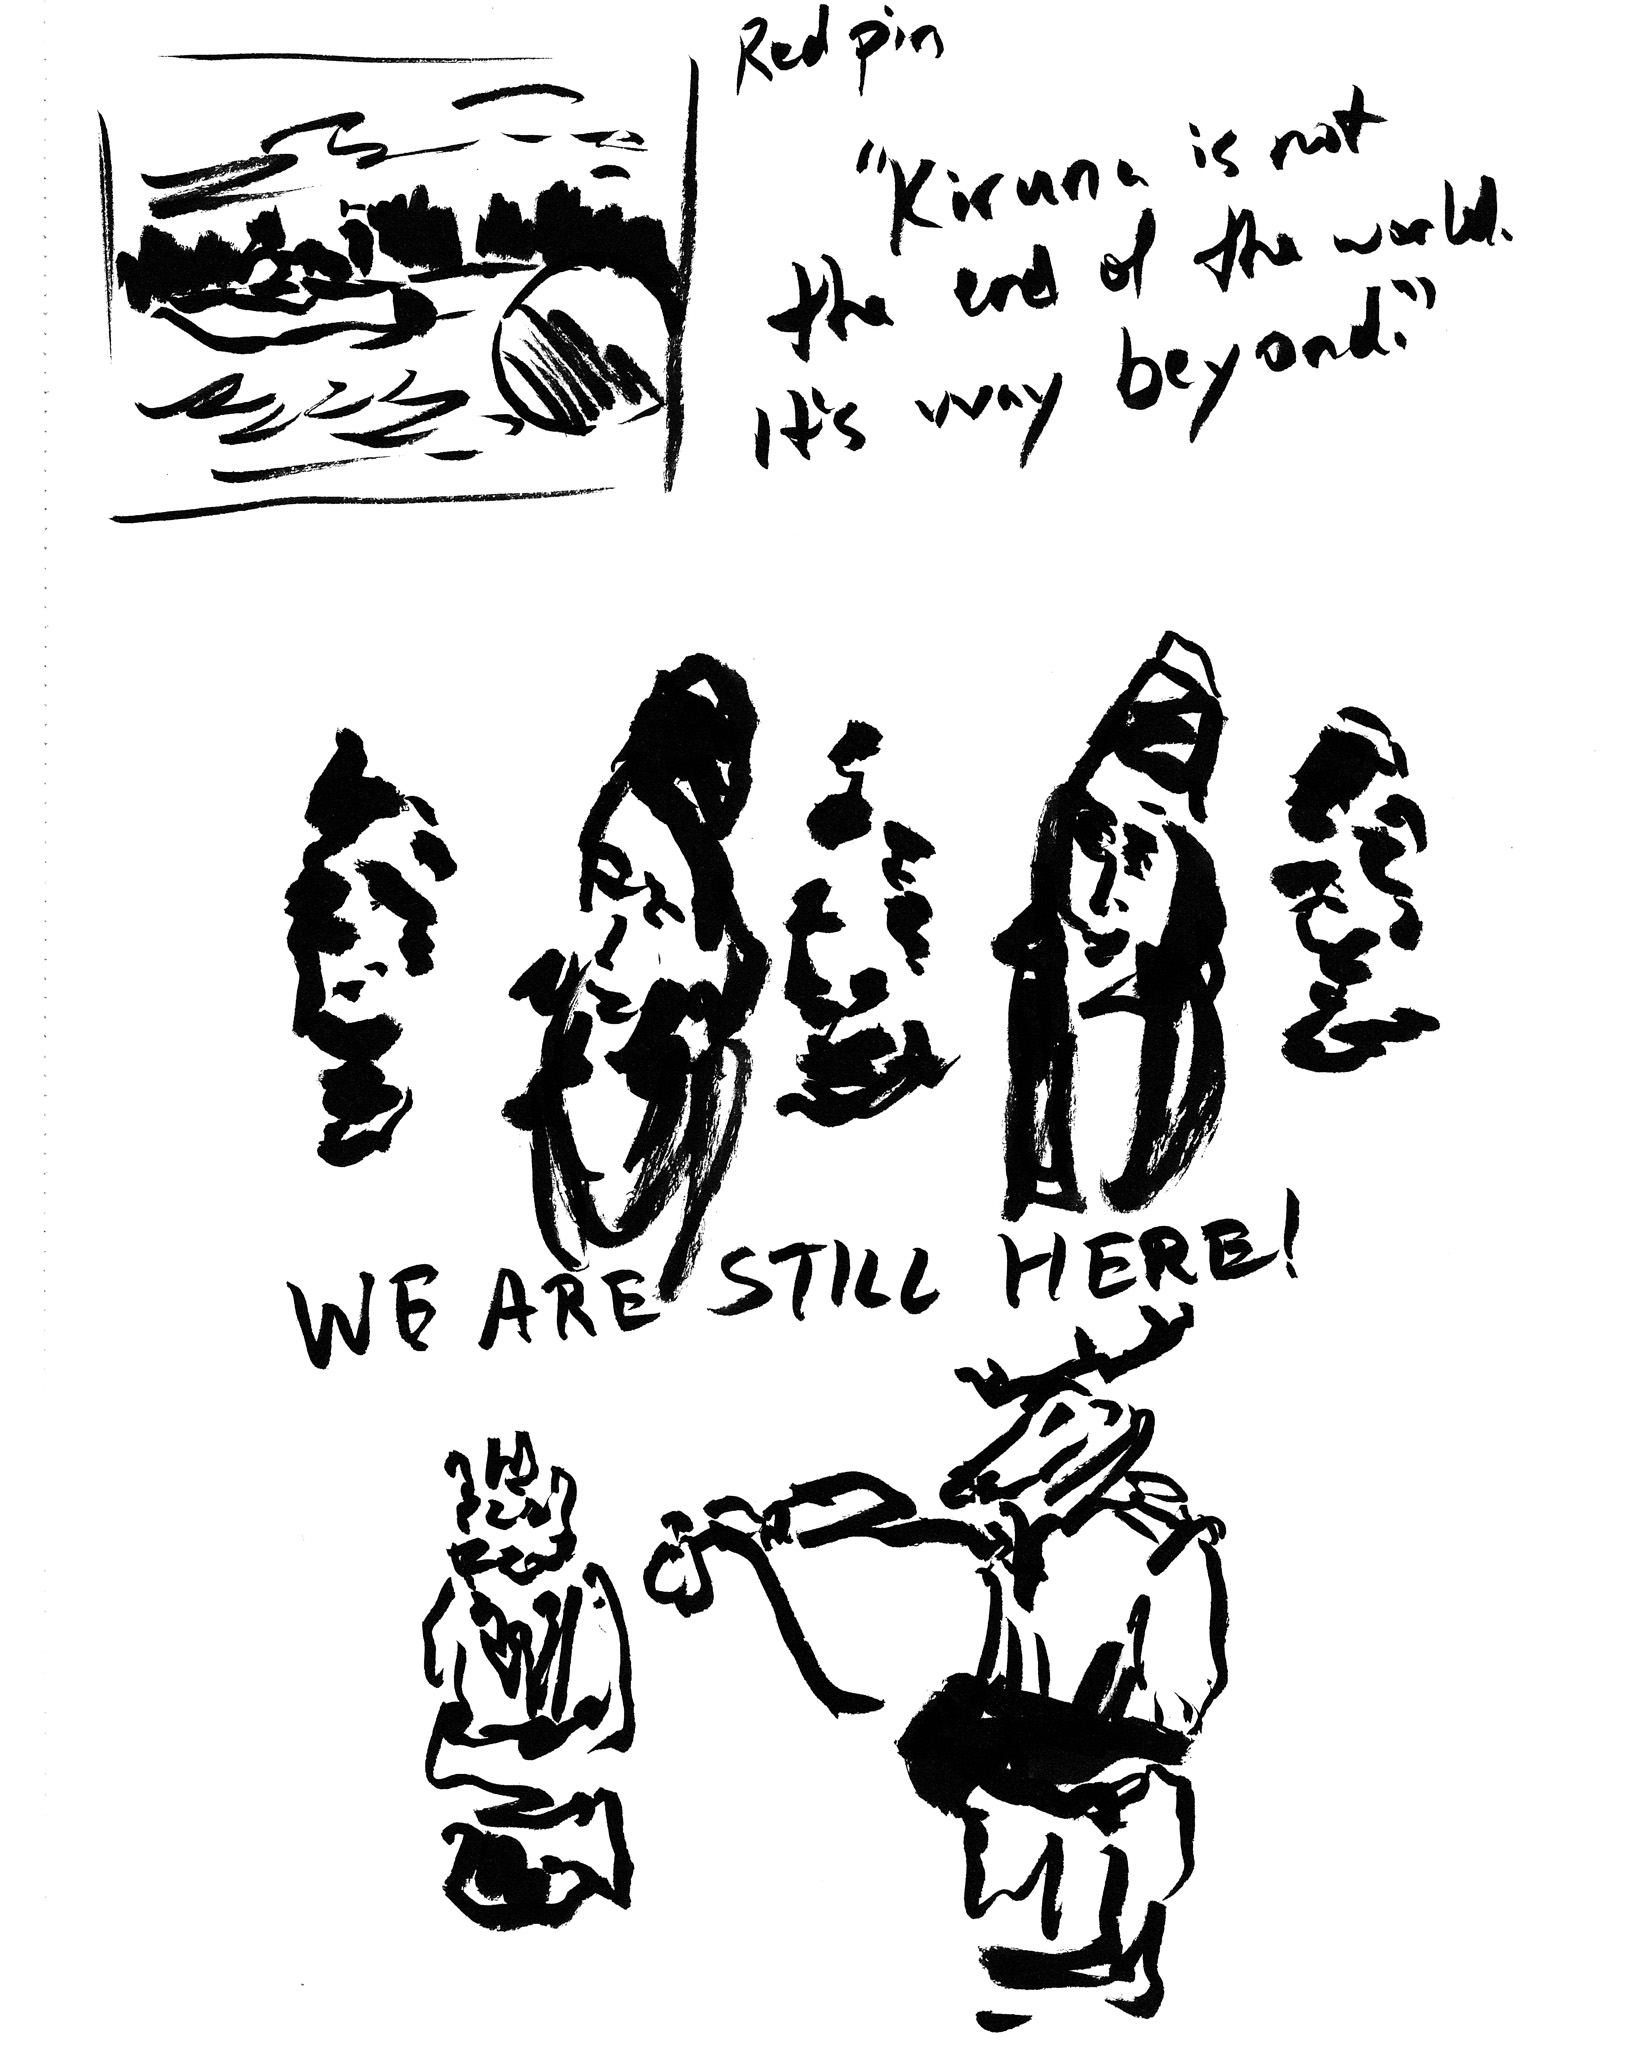 Red pin
"Kiruna is not
the end of the world.
it's way beyond."
WE ARE STILL HERE!